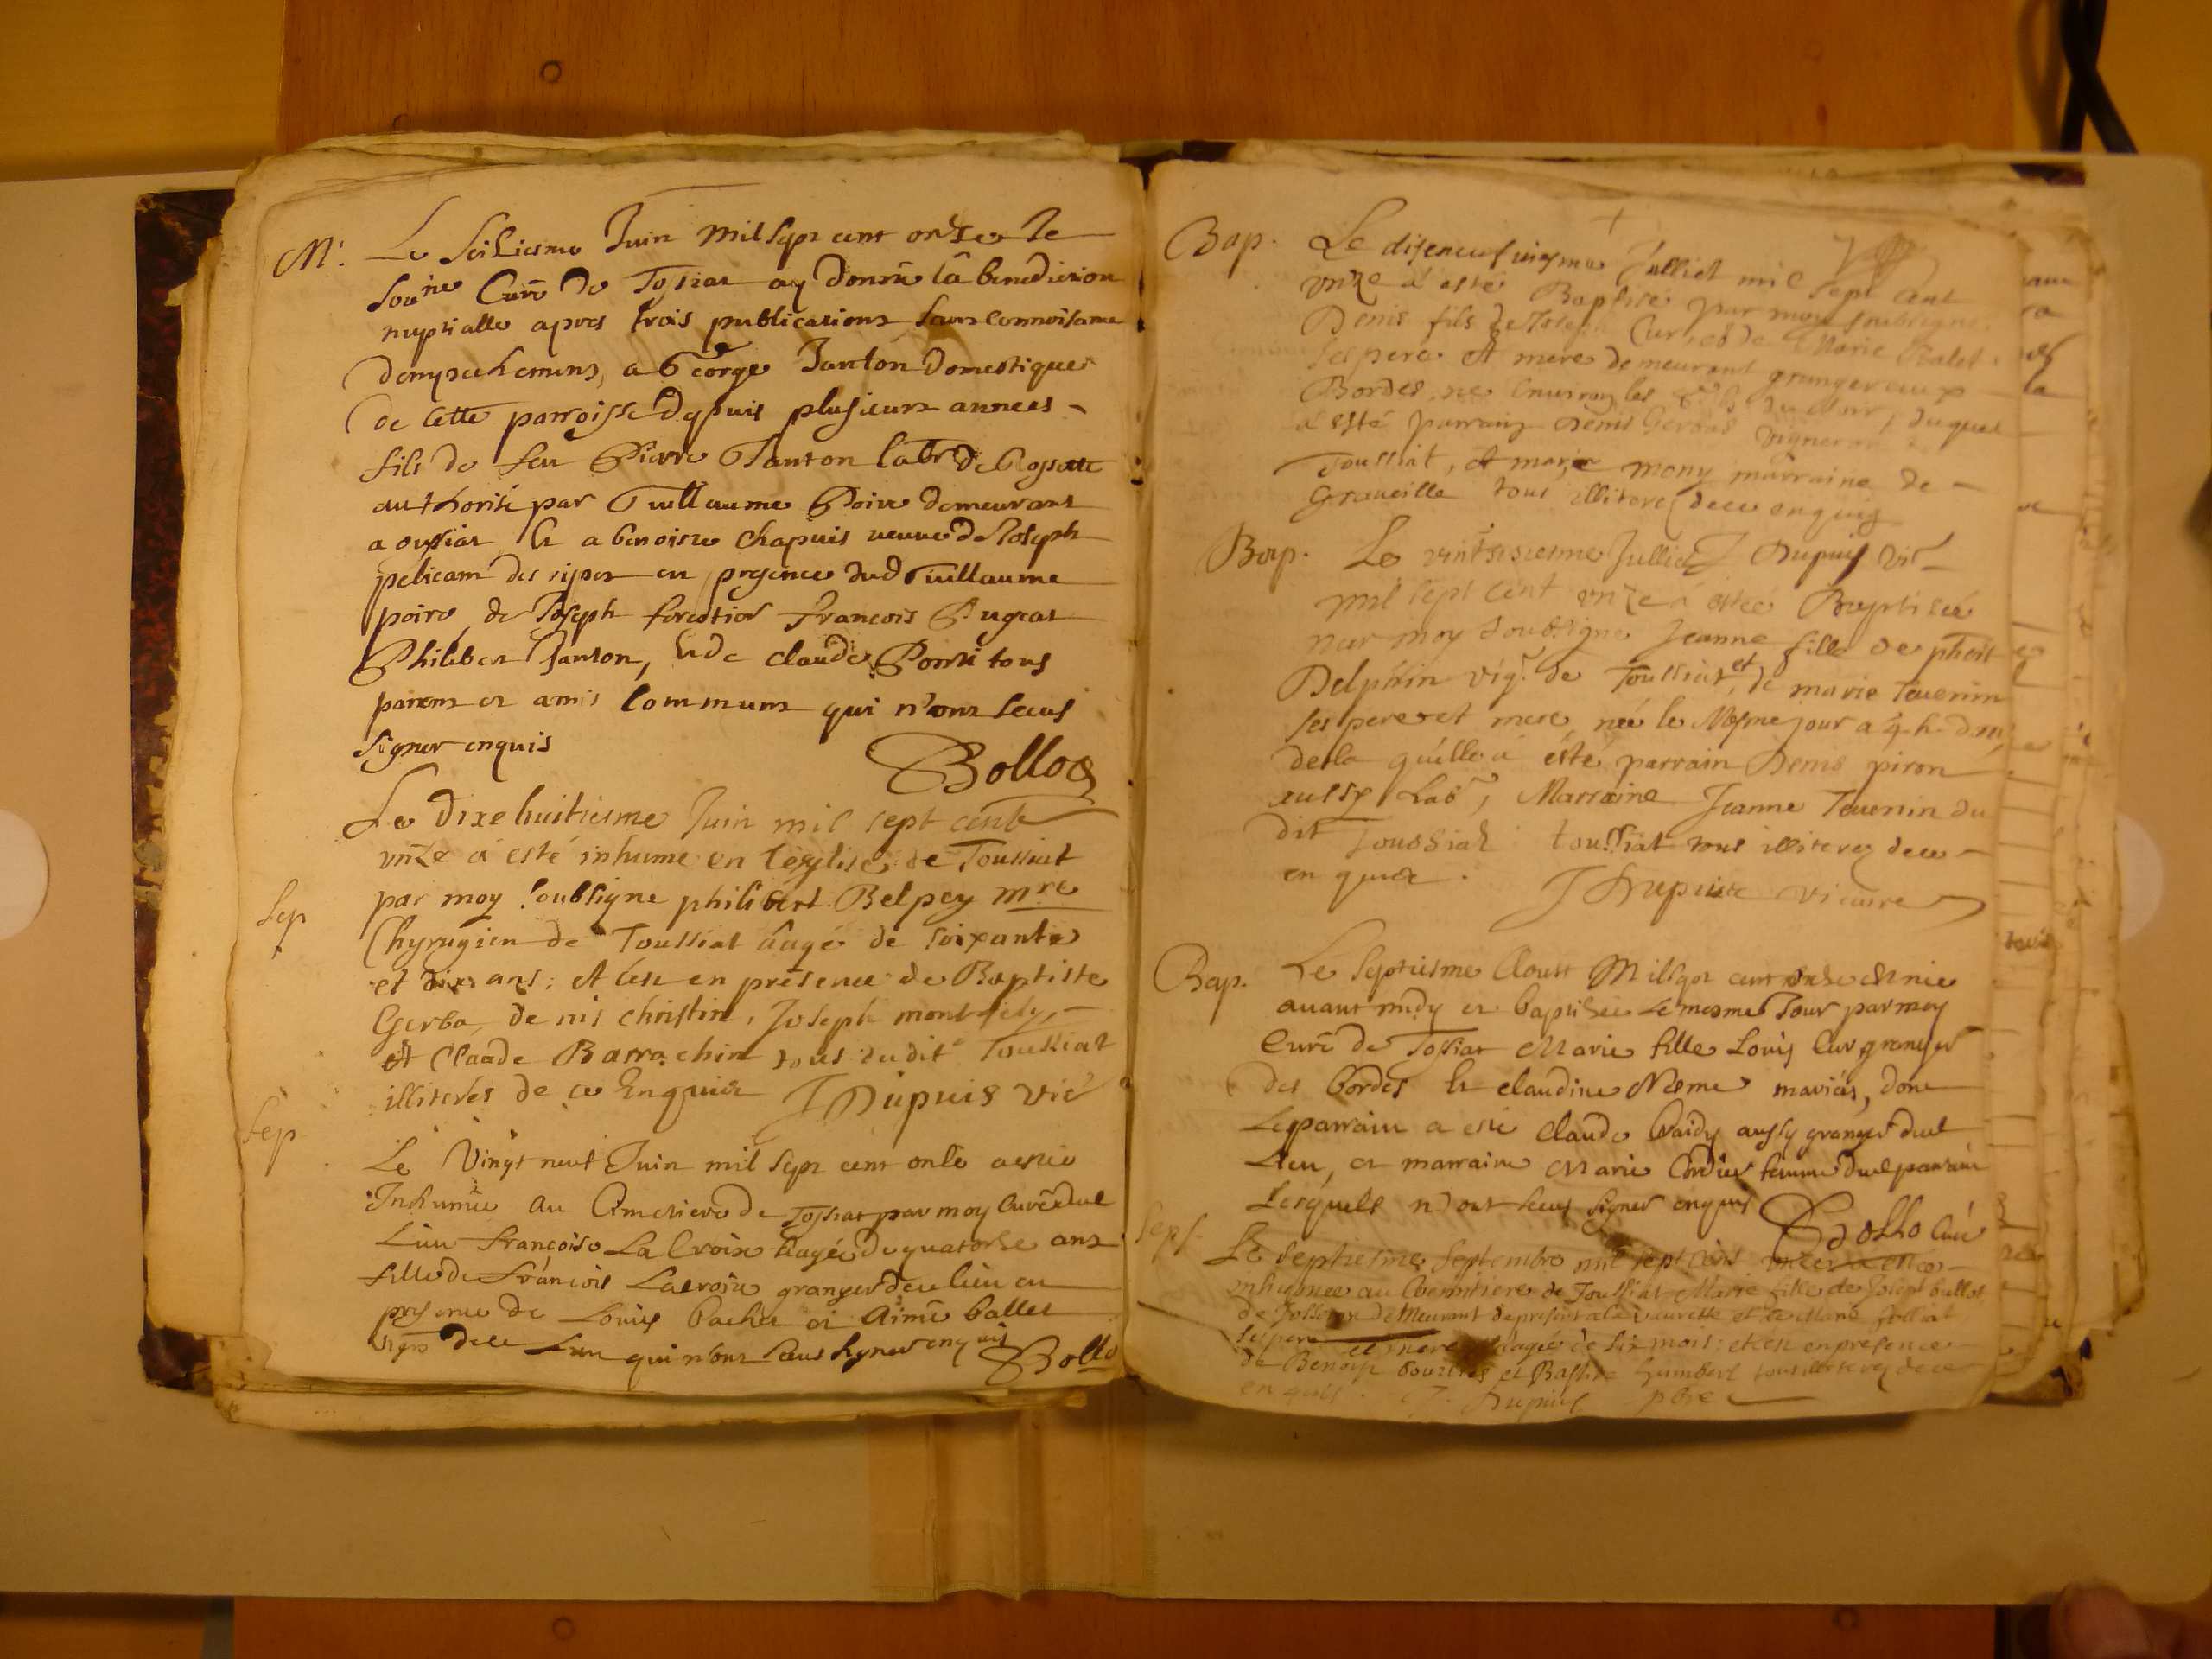 M.
Le Seiziesme Juin Mil sept cent onze Je
Sousne Curé de Tossiat ay donné la benediction
nuptialle apres trois publications sans connoisance
dempechemens, a George Janton domestique
de cette parroisse depuis plusieurs annees
fils de feu Pierre Janton labr de
authorisé par Guillaume Poire demeurant
a Et a benoiste Chapuis veuve de Joseph
pelicam des en presence dud Guillaume
poire, de Joseph forestier francois Pugeat
Philibert Janton, et de claude tous
parens et amis communs qui n'ont sceus
signer enquis
Bollo
Le dixehuitiesme Juin mil sept cent
vnze a esté inhumé en l'esglise de Toussiat
Sep
par moy soubsigne philibert Belpey mre
Chyrugien de Toussiat aagé de soixante
et dix ans; et cest en presence de Baptiste
Gerba, denis christin, Joseph
et Claude Barrachin tous dudit Toussiat
illiterés de ce Enquis J Dupuis vic
Sep
Le Vingt neuf Juin mil sept cent onze a esté
Inhumée au Cimetiere de Tossiat par moy Curé dud
Lieu francoise La Croix aagée de quatorze ans
fille de francois Lacroix granger de ce lieu en
presence de Louis bacher et Aimé ballet
vigns de ce Lieu qui n'ont sceus signer enquis
Bollo
Bap.
Le disneufuiesme Julliet mil sept cent
vnze a esté Baptisé par moy soubsigne
Denis fils de Joseph Cur, et de Marie
ses pere et mere demeurant granger aux
Bordes, ne environ les du soir, duquel
a esté parrain Denis Gerbas Vigneron
Toussiat, et marie mony marraine de
Graveille tous illiterez de ce enquis
J Dupuis vic
Bap.
Le vintsiesme Julliet
mil sept cent vnze a estée Baptisée
par moy soussigne Jeanne fille de phert
Delphin vig. de Toussiat, et de marie Tevenin
ses pere et mere née le Mesme jour a 4 h.
de la quelle a ésté parrain Denis piron
aussy Labr, Marraine Jeanne Tevenin du
dit Toussiat toussiat tous illiterez de ce
en quis.
J Dupuis vicaire
Bap.
Le septiesme Aoust Mil sept cent onze est nie
avant midy et baptisée le mesme Jour par moy
Curé de Tossiat Marie fille Louis Cur granger
des bordes Et claudine Nesme mariés, dont
Le parrain a esté Claude aussy granger dud
Lieu, et marraine Marie Cordier femme dud parrain
Lesquels n'ont sceus signer enquis
Bollo Curé
Sep.
Le septiesme Septembre mil sept cent vnze a esté
inhumee au Coemitiere de Toussiat Marie fille de Joseph bullot
de demeurant a present a la et de
ses pere et mere aagée de six mois: et cest en presence
de Benoist et Baptiste humbert tous illiterez de ce
enquis. J. Dupuis pbre